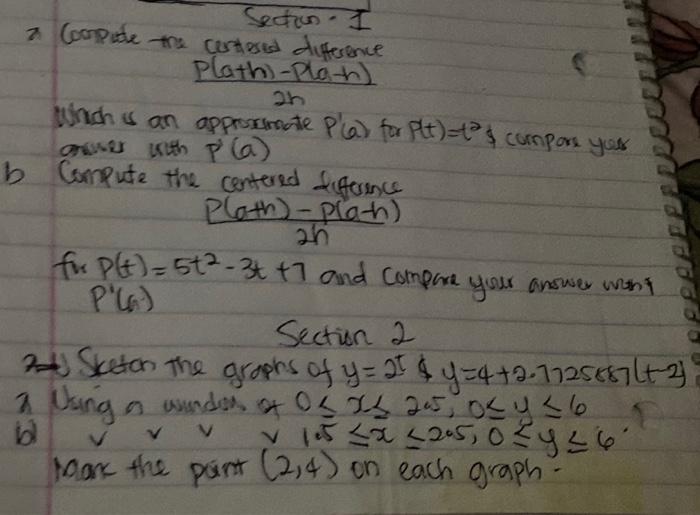 Section - I
a Compute the centered difference
P(a+h) - P(a-h)
2h
Which is an approximate P'(a) for P(t)=t² & compare your
answer with P'(a)
b Compute the centered difference
P(a+h) - P(a-h)
2h
for P(t) = 5t² - 3t + 7 and compare your answer with
P'(a)
Section 2
Sketch the graphs of y = 2ᵗ & y = 4 + 2.7725887(t-2)
a Using a window of 0 ≤ x ≤ 2.5, 0 ≤ y ≤ 6
b) ✓ ✓ ✓ ✓ 1.5 ≤ x ≤ 2.5, 0 ≤ y ≤ 6.
Mark the point (2,4) on each graph.